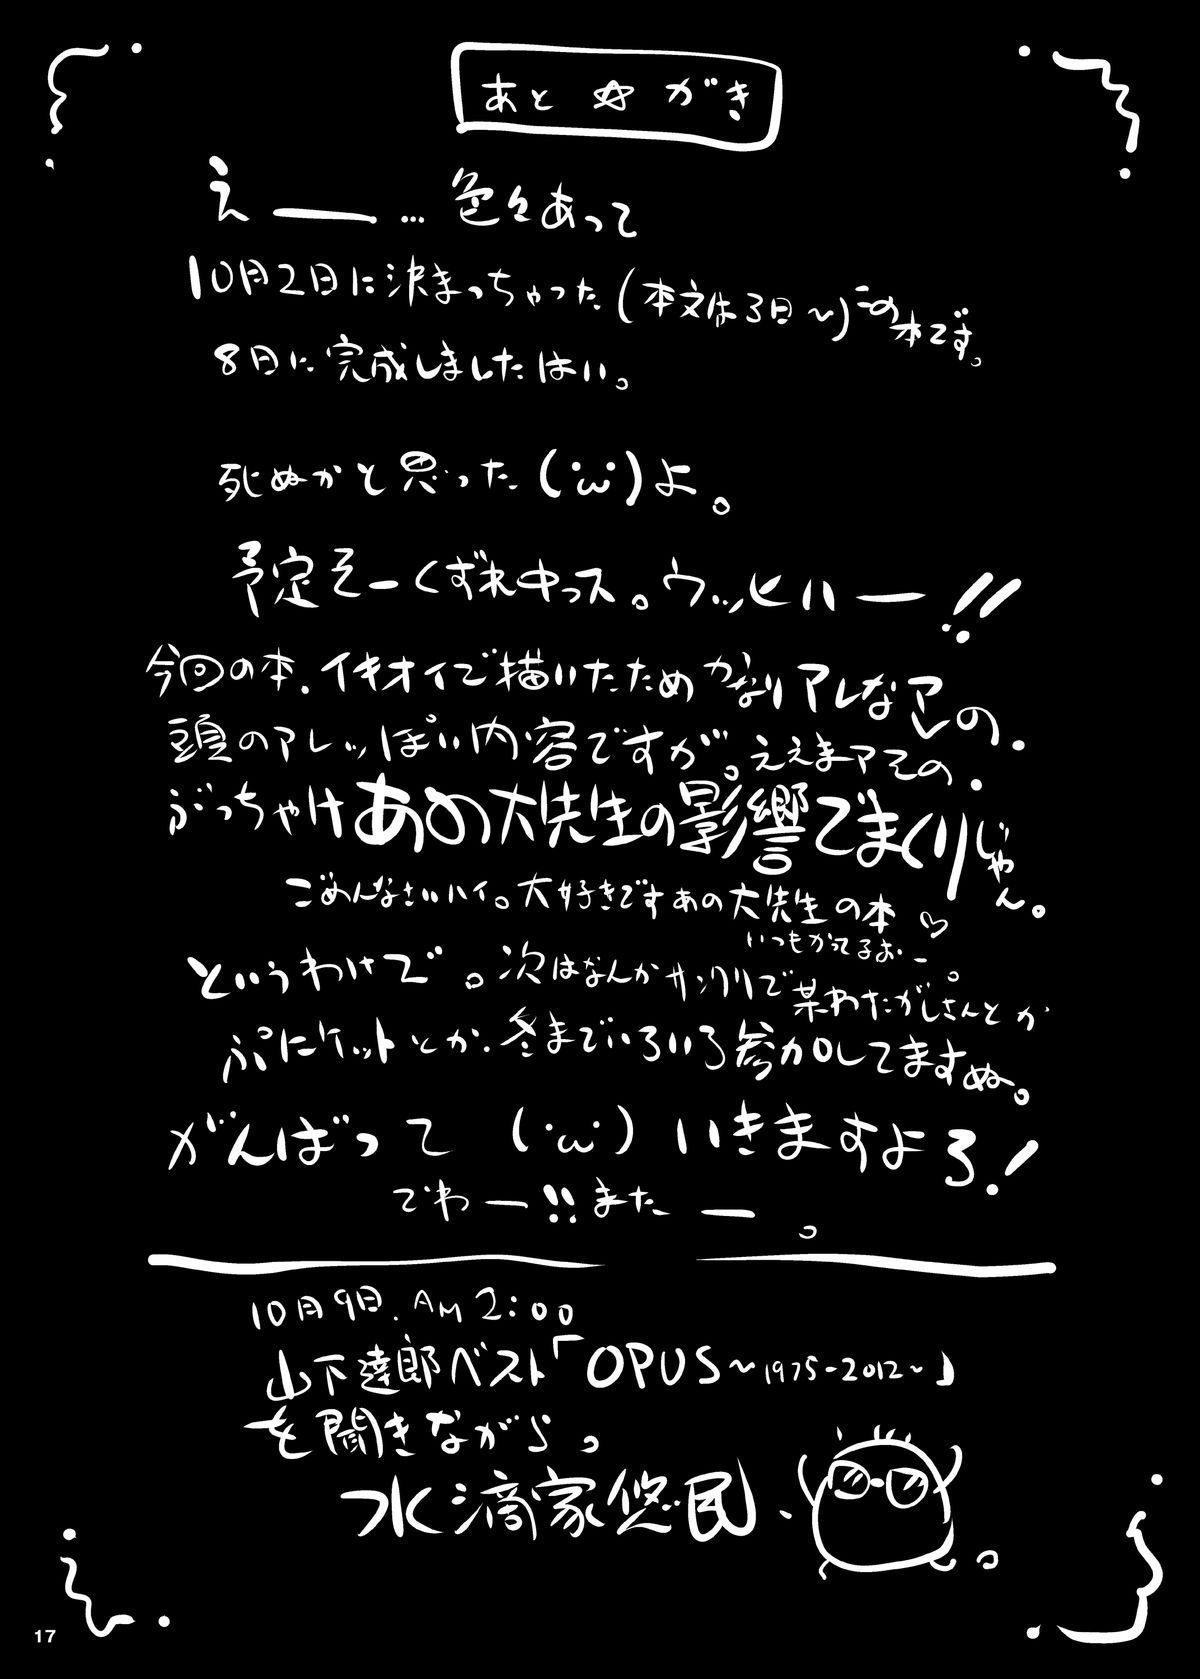 あと☆がき
えー…色々あって
10月2日に決まっちゃった(本文は3日～)この本です。
8日に完成しましたはい。
死ぬかと思った(´･ω･`)よ。
予定そーくずれ中っス。ウッヒハー!!
今回の本.イキオイで描いたためかなりアレなアレの.
頭のアレッぽい内容ですが。ええまアその.
ぶっちゃけあの大先生の影響でまくりじゃん。
ごめんなさいハイ。大好きですあの大先生の本♡
いつもかってるおー
というわけで。次はなんかサンクリで某わたがしさんとか。
ぷにケットとか.冬までいろいろ参加してますぬ。
がんばって(´･ω･`)いきますよろ!
でわー!!またー。
10月9日.AM2:00
山下達郎ベスト「OPUS～1975-2012～」
を聞きながら。
水滴家悠民、
17